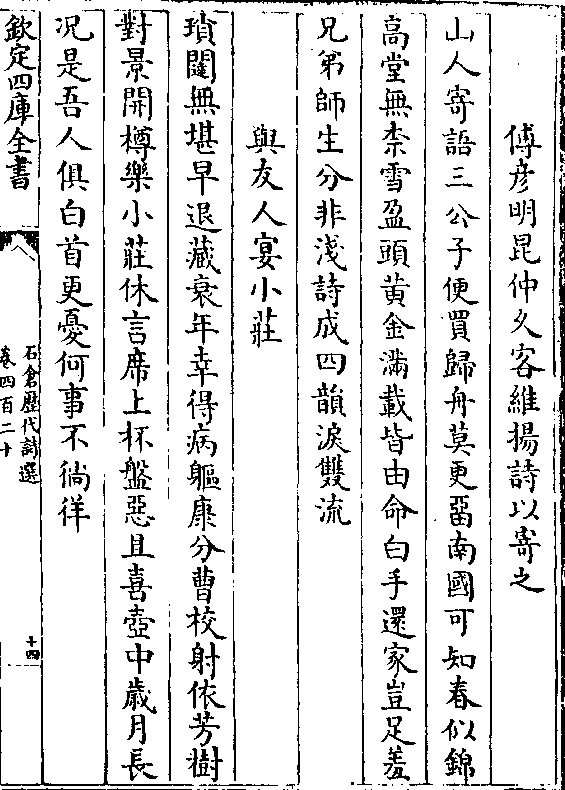 傅彦明昆仲久客維揚詩以寄之
山人寄語三公子便買歸舟莫更畱南國可知春似錦
髙堂無柰雪盈頭黄金滿載皆由命白手還家豈足羞
兄弟師生分非淺詩成四韻淚雙流
與友人宴小莊
瑣闥無堪早退藏衰年幸得病軀康分曹校射依芳樹
對景開樽樂小莊休言席上杯盤惡且喜壺中歳月長
况是吾人俱白首更憂何事不徜徉
欽定四庫全書
石倉歴代詩選
卷四百二十
十四